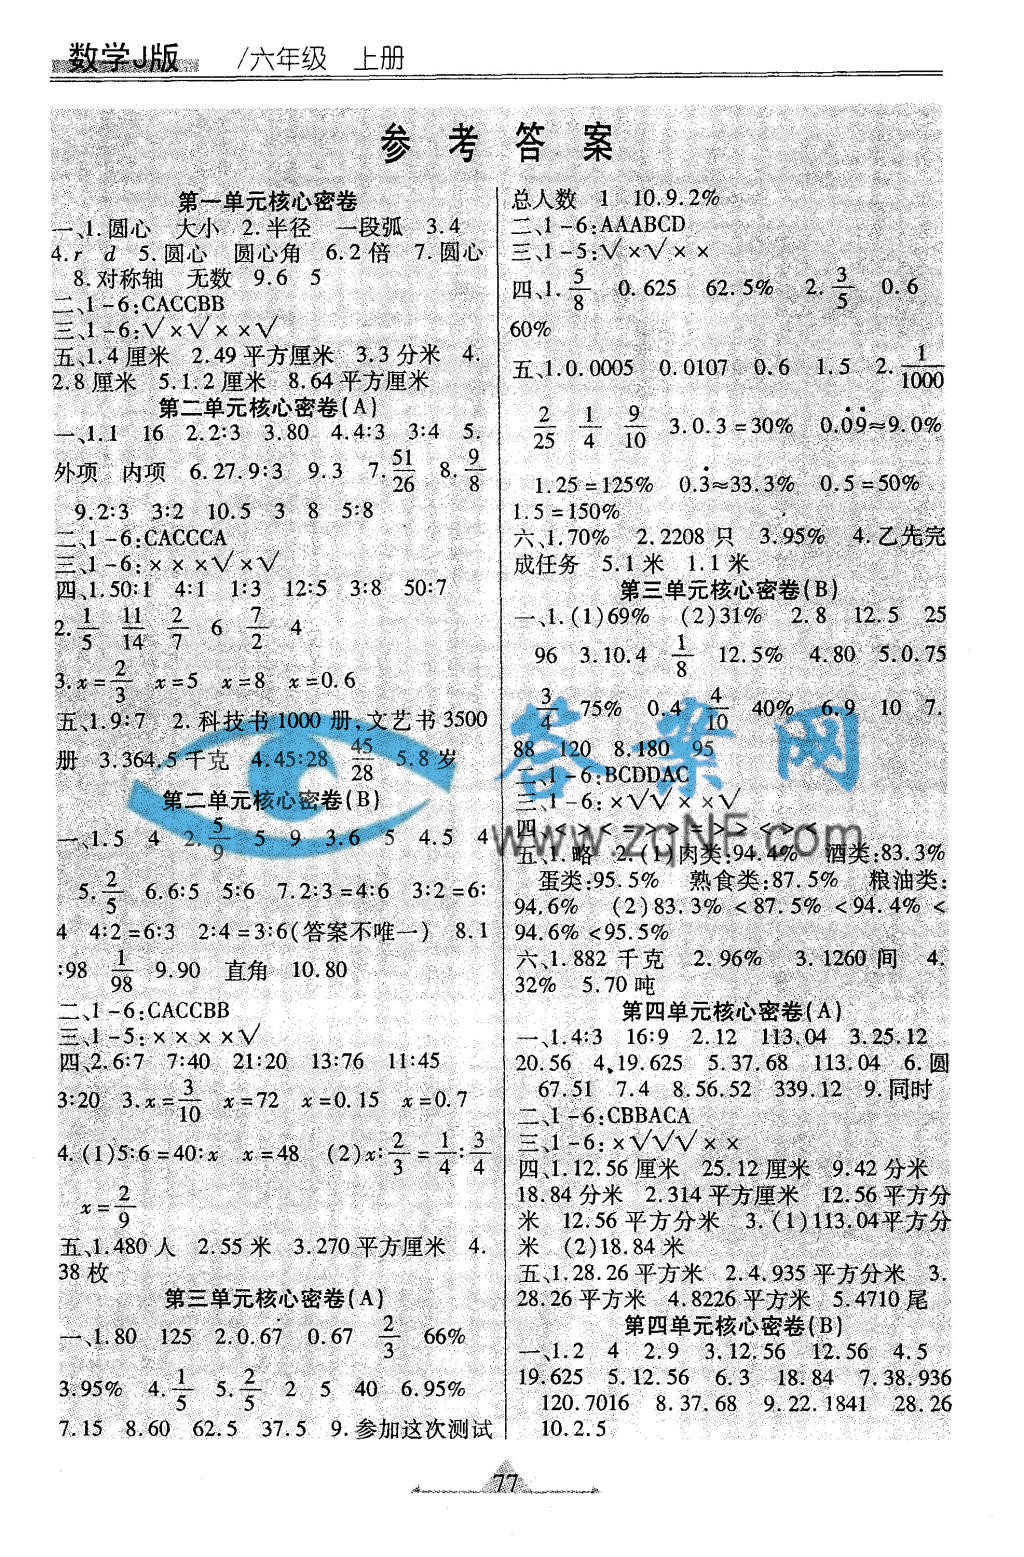 数学J版 /六年级 上册
参考答案
第一单元核心密卷
一、1.圆心 大小 2.半径 一段弧 3.4
4.r d 5.圆心 圆心角 6.2倍 7.圆心
8.对称轴 无数 9.6 5
二、1-6:CACCBB
三、1-6:√×√××√
五、1.4厘米 2.49平方厘米 3.3分米 4.
2.8厘米 5.1.2厘米 8.64平方厘米
第二单元核心密卷(A)
一、1.1 16 2.2:3 3.80 4.4:3 3:4 5.
外项 内项 6.27.9:3 9.3 7.51/26 8.9/8
9.2:3 3:2 10.5 3 8 5:8
二、1-6:CACCCA
三、1-6:×××√×√
四、1.50:1 4:1 1:3 12:5 3:8 50:7
2.1/5 11/14 2/7 6 7/2 4
3.x=2/3 x=5 x=8 x=0.6
五、1.9:7 2.科技书1000册,文艺书3500
册 3.364.5千克 4.45:28 45/28 5.8岁
第二单元核心密卷(B)
一、1.5 4 2.5/9 5 9 3.6 5 4.5 4
5.2/5 6.6:5 5:6 7.2:3=4:6 3:2=6:
4 4:2=6:3 2:4=3:6(答案不唯一) 8.1
:98 1/98 9.90 直角 10.80
二、1-6:CACCBB
三、1-5:××××√
四、2.6:7 7:40 21:20 13:76 11:45
3:20 3.x=3/10 x=72 x=0.15 x=0.7
4.(1)5:6=40:x x=48 (2)x:2/3=1/4:3/4
x=2/9
五、1.480人 2.55米 3.270平方厘米 4.
38枚
第三单元核心密卷(A)
一、1.80 125 2.0.67 0.67 2/3 66%
3.95% 4.1/5 5.2/5 2 5 40 6.95%
7.15 8.60 62.5 37.5 9.参加这次测试
总人数 1 10.9.2%
二、1-6:AAABCD
三、1-5:√×√××
四、1.5/8 0.625 62.5% 2.3/5 0.6
60%
五、1.0.0005 0.0107 0.6 1.5 2.1/1000
2/25 1/4 9/10 3.0.3=30% 0.0̇9̇≈9.0%
1.25=125% 0.3̇≈33.3% 0.5=50%
1.5=150%
六、1.70% 2.2208只 3.95% 4.乙先完
成任务 5.1米 1.1米
第三单元核心密卷(B)
一、1.(1)69% (2)31% 2.8 12.5 25
96 3.10.4 1/8 12.5% 4.80 5.0.75
3/4 75% 0.4 4/10 40% 6.9 10 7.
88 120 8.180 95
二、1-6:BCDDAC
三、1-6:×√√××√
四、< > < = > > = > > < > <
五、1.略 2.(1)肉类:94.4% 酒类:83.3%
蛋类:95.5% 熟食类:87.5% 粮油类:
94.6% (2)83.3%<87.5%<94.4%<
94.6%<95.5%
六、1.882千克 2.96% 3.1260间 4.
32% 5.70吨
第四单元核心密卷(A)
一、1.4:3 16:9 2.12 113.04 3.25.12
20.56 4.19.625 5.37.68 113.04 6.圆
67.51 7.4 8.56.52 339.12 9.同时
二、1-6:CBBACA
三、1-6:×√√√××
四、1.12.56厘米 25.12厘米 9.42分米
18.84分米 2.314平方厘米 12.56平方分
米 12.56平方分米 3.(1)113.04平方分
米 (2)18.84米
五、1.28.26平方米 2.4.935平方分米 3.
28.26平方米 4.8226平方米 5.4710尾
第四单元核心密卷(B)
一、1.2 4 2.9 3.12.56 12.56 4.5
19.625 5.12.56 6.3 18.84 7.38.936
120.7016 8.37.68 9.22.1841 28.26
10.2.5
77
答案网
www.zqNF.com